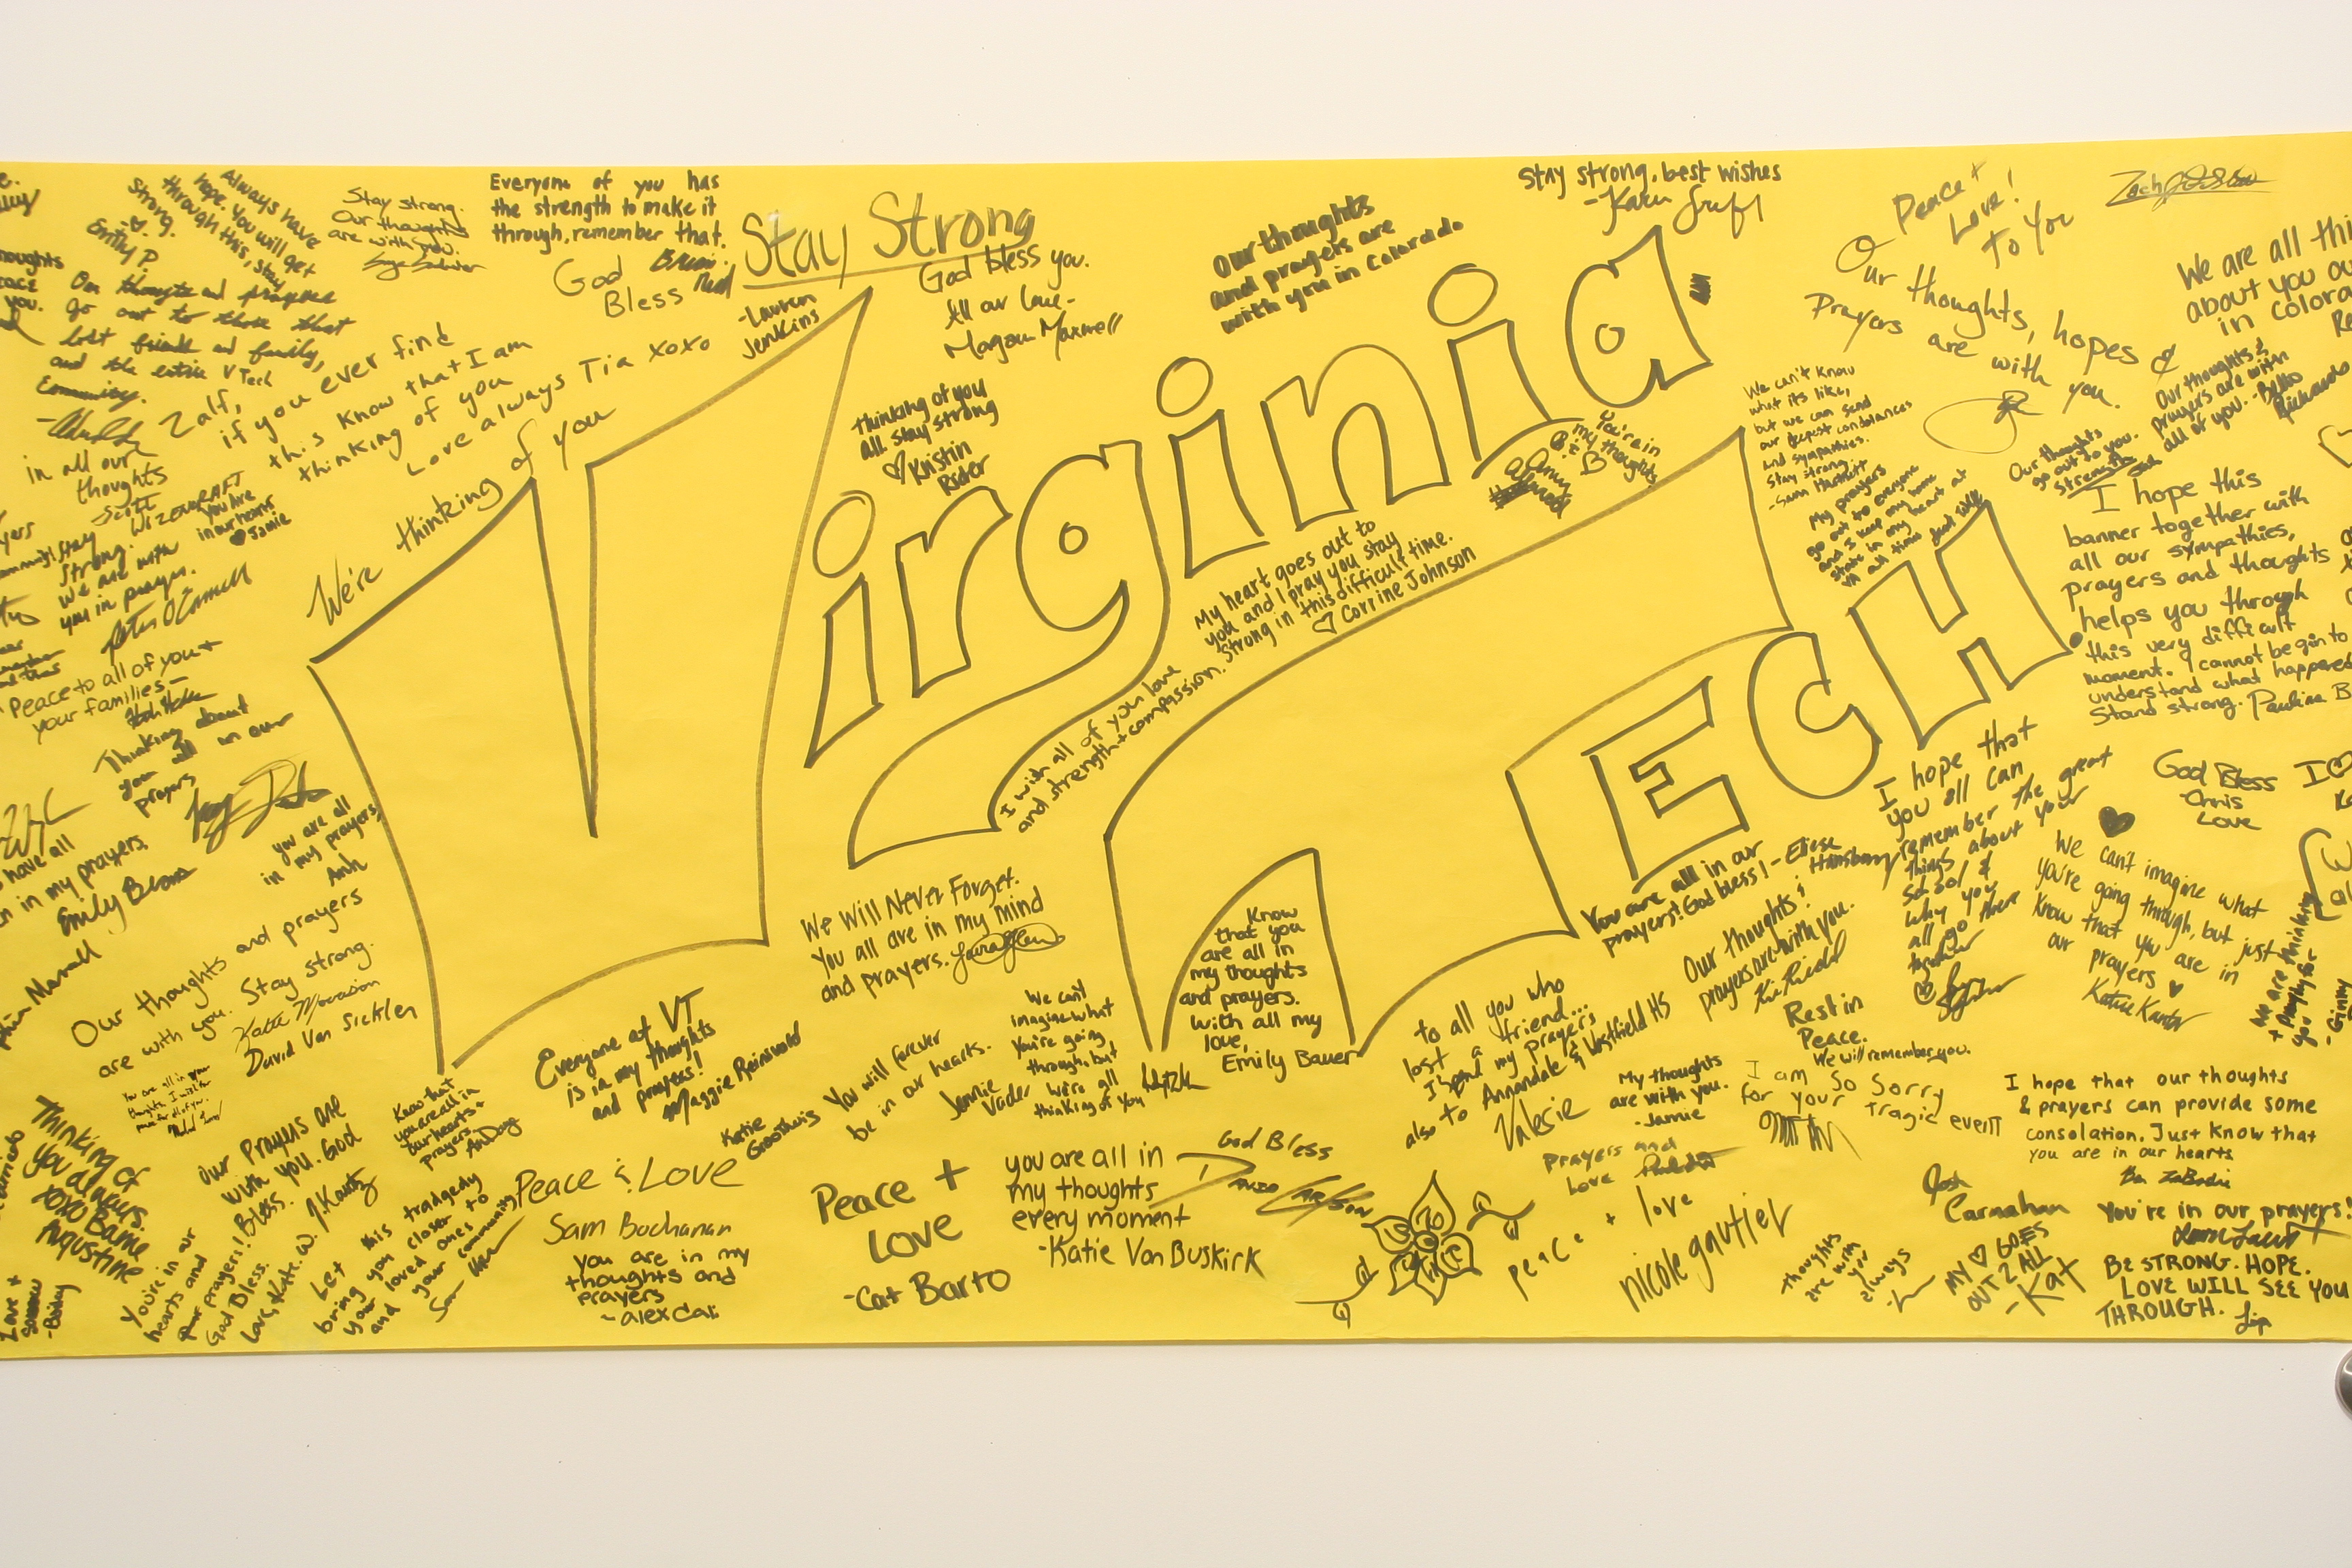 Always have
hope, you will get
through this, stay
strong.
Emily P
Stay strong.
Our thoughts
are with you.
Everyone of you has
the strength to make it
through, remember that.
God
Bless
Stay Strong
-Lauren
Jenkins
God bless you.
All our love-
Magan Maxwell
Our thoughts
and prayers are
with you in Colorado
Stay strong, best wishes
Peace +
Love!
To You
Zach
We are all
about you
in
Our thoughts and prayers
go out to those that
lost friends and family,
and the entire VTech
Community.
Zalf,
if you ever find
this know that I am
thinking of you
Love always Tia xoxo
We're thinking of you
Thinking of you
all stay strong
♡ Kristin
Rider
Virginia
TECH.
Our thoughts, hopes &
Prayers are with you.
We can't know
what its like,
but we can send
our deepest condolances
and sympathies.
Stay strong
-Sara
My prayers
go out to everyone
and I keep my home
state in my heart at
all times
Our thoughts &
prayers are with
all of you.
Our thoughts
go out to you.
Strength
You're in
my thoughts
in all our
thoughts
Scott
You are
in our hearts
♥ Jamie
stay
strong.
We are with
you in prayer.
Peter O'Connell
My heart goes out to
you and I pray you stay
strong in this difficult time.
♡ Corrine Johnson
I wish all of you love
and strength + compassion.
I hope this
banner together with
all our sympathies,
prayers and thoughts
helps you through
this very difficult
moment. I cannot begin to
understand what happened
Stand strong. Paulina B
Peace to all of you +
your families-
Thinking about
you all in our
prayers
you are all
in my prayers,
Anh
have all
in my prayers,
Emily
I hope that
you all can
remember the great
things about your
school &
why you
all go there
together
God Bless
Chris
Love
We can't imagine what
you're going through, but just
know that you are in
our prayers ♥
Katie Kantor
You are all in our
prayers! God bless! - Eliese
We Will Never Forget.
You all are in my mind
and prayers.
Know
that you
are all in
my thoughts
and prayers.
with all my
love,
Emily Bauer
Our thoughts &
prayers are with you.
We are thinking
+ praying for
you
-Ginny
Our thoughts and prayers
are with you. Stay strong.
Katie
David Van Sickler
Everyone at VT
is in my thoughts
and prayers!
Maggie Reinsvold
You will forever
be in our hearts.
Katie
Jennie
Vader
We can't
imagine what
You're going
through, but
we're all
thinking of You
to all you who
lost a friend...
I send my prayers
also to Annandale & Westfield HS
Valerie
My thoughts
are with you.
-Jamie
Rest in
Peace.
We will remember you.
I am So Sorry
for your tragic event
I hope that our thoughts
& prayers can provide some
consolation. Just know that
you are in our hearts
Thinking of
you always.
xoxo Bame
Augustine
Our Prayers are
with you. God
Bless.
Know that
you are all in
our hearts +
prayers
Peace & Love
Sam Buchanan
You are in my
thoughts and
prayers
Peace +
Love
-Cat Barto
you are all in
my thoughts
every moment
-Katie Van Buskirk
God Bless
David Carlson
Prayers and
love
peace + love
nicole gautier
Josh
Carnahan
You're in our prayers!
BE STRONG. HOPE.
LOVE WILL SEE YOU
THROUGH.
thoughts
are with
you
always
MY ♡ GOES
OUT 2 ALL
-Kat
Love +
-Bailey
You're in our
hearts and
our prayers!
God Bless.
Love, Katie W.
Let this tradgedy
bring you closer to
your loved ones
and your community.